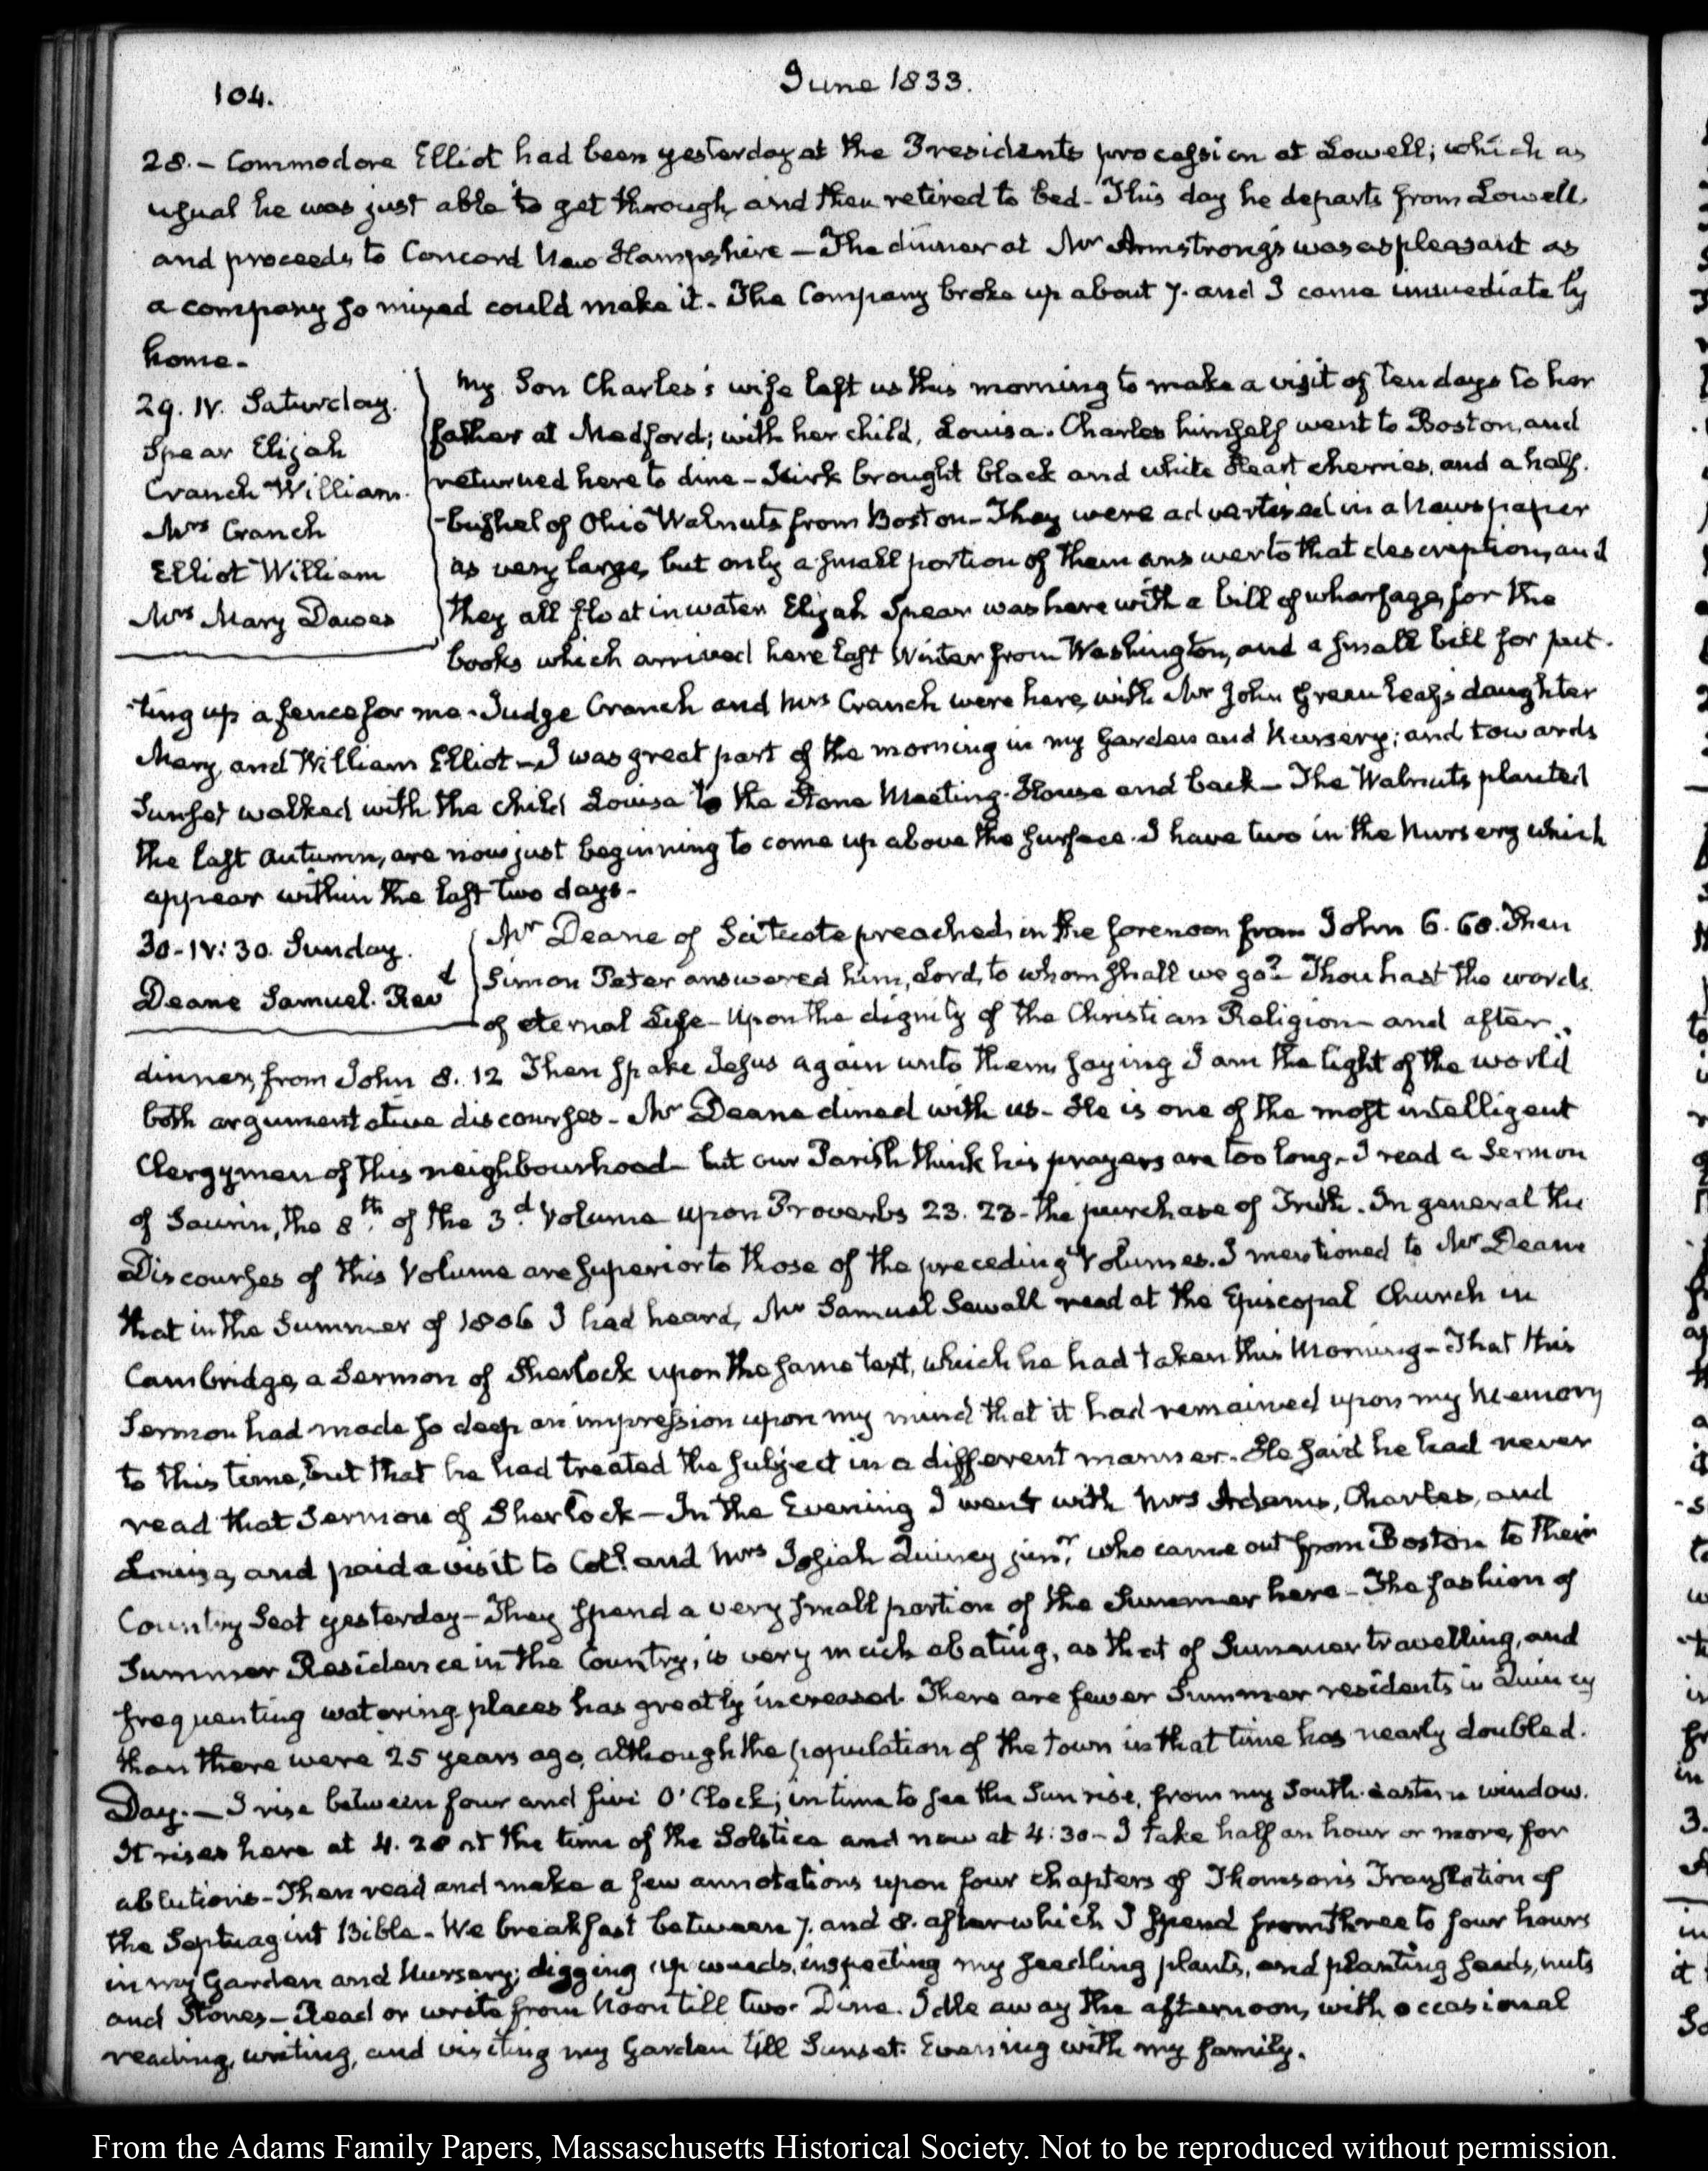 104.
June 1833.
28.- Commodore Elliot had been yesterday at the Presidents procession at Lowell; which as
usual he was just able to get through, and then retired to bed- This day he departs from Lowell,
and proceeds to Concord New Hampshire - The dinner at Mr Armstrong's was as pleasant as
a company so mixed could make it. The Company broke up about 7. and I came immediately
home.
29. IV. Saturday.
Spear Elijah
Cranch William.
Mrs Cranch
Elliot William
Mrs Mary Dawes
My Son Charles's wife left us this morning to make a visit of ten days to her
father at Medford; with her child, Louisa. Charles himself went to Boston, and
returned here to dine - Kirk brought black and white Heart cherries, and a half.
-bushel of Ohio Walnuts from Boston - They were advertised in a Newspaper
as very large, but only a small portion of them answer to that description, and
they all float in water. Elijah Spear was here with a bill of wharfage, for the
books which arrived here last Winter from Washington, and a small bill for put-
-ting up a fence for me. Judge Cranch and Mrs Cranch were here, with Mr John Greenleaf's daughter
Mary, and William Elliot - I was great part of the morning in my Garden and Nursery; and towards
Sunset walked with the child Louisa to the Stone Meeting-House and back - The Walnuts planted
the last Autumn, are now just beginning to come up above the surface. I have two in the Nursery which
appear within the last two days-
30- IV:30. Sunday.
Deane Samuel. Revd
Mr Deane of Scituate preached in the forenoon from John 6. 68. Then
Simon Peter answered him, Lord, to whom shall we go? Thou hast the words
of eternal Life - Upon the dignity of the Christian Religion - and after
dinner, from John 8. 12 Then spake Jesus again unto them, saying I am the light of the world
both argumentative discourses - Mr Deane dined with us - He is one of the most intelligent
Clergymen of this neighbourhood - but our Parish think his prayers are too long - I read a Sermon
of Saurin, the 8th. of the 3d. Volume upon Proverbs 23. 23 - the purchase of Truth. In general the
Discourses of this Volume are superior to those of the preceding Volumes. I mentioned to Mr Deane
that in the Summer of 1806 I had heard, Mr Samuel Sewall read at the Episcopal Church in
Cambridge, a Sermon of Sherlock upon the same text, which he had taken this Morning - That this
Sermon had made so deep an impression upon my mind that it had remained upon my Memory
to this time, but that he had treated the subject in a different manner. He said he had never
read that Sermon of Sherlock - In the Evening I went with Mrs Adams, Charles, and
Louisa, and paid a visit to Coll. and Mrs Josiah Quincy junr. who came out from Boston to their
Country Seat yesterday - They spend a very small portion of the Summer here - The fashion of
Summer Residence in the Country, is very much abating, as that of Summer travelling, and
frequenting watering places has greatly increased. There are fewer Summer residents in Quincy
than there were 25 years ago, although the population of the Town in that time has nearly doubled.
Day. - I rise between four and five O'Clock; in time to see the Sun rise, from my South-eastern window.
It rises here at 4. 28 at the time of the Solstice and now at 4:30 - I take half an hour or more, for
ablutions - Then read and make a few annotations upon four chapters of Thomson's Translation of
the Septuagint Bible. We breakfast between 7. and 8. after which I spend from three to four hours
in my Garden and Nursery; digging up weeds, inspecting my seedling plants, and planting seeds, nuts
and Stones - Read or write from Noon till two. Dine. Idle away the afternoon, with occasional
reading, writing, and visiting my Garden till Sunset. Evening with my family.
From the Adams Family Papers, Massaschusetts Historical Society. Not to be reproduced without permission.